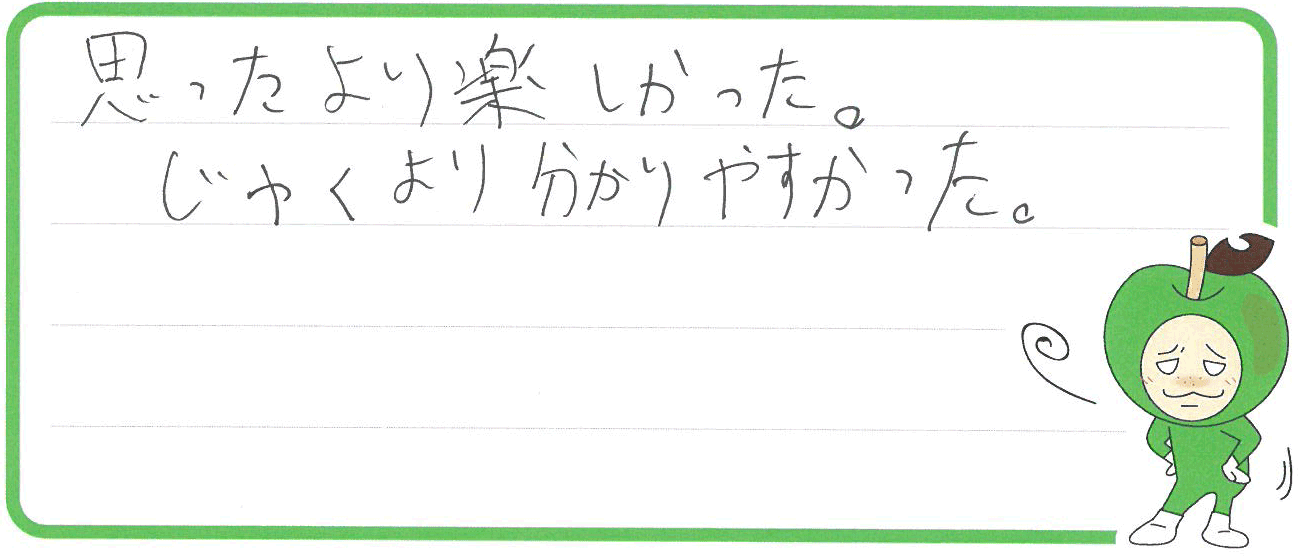 思ったより楽しかった。
じゃくより分かりやすかった。